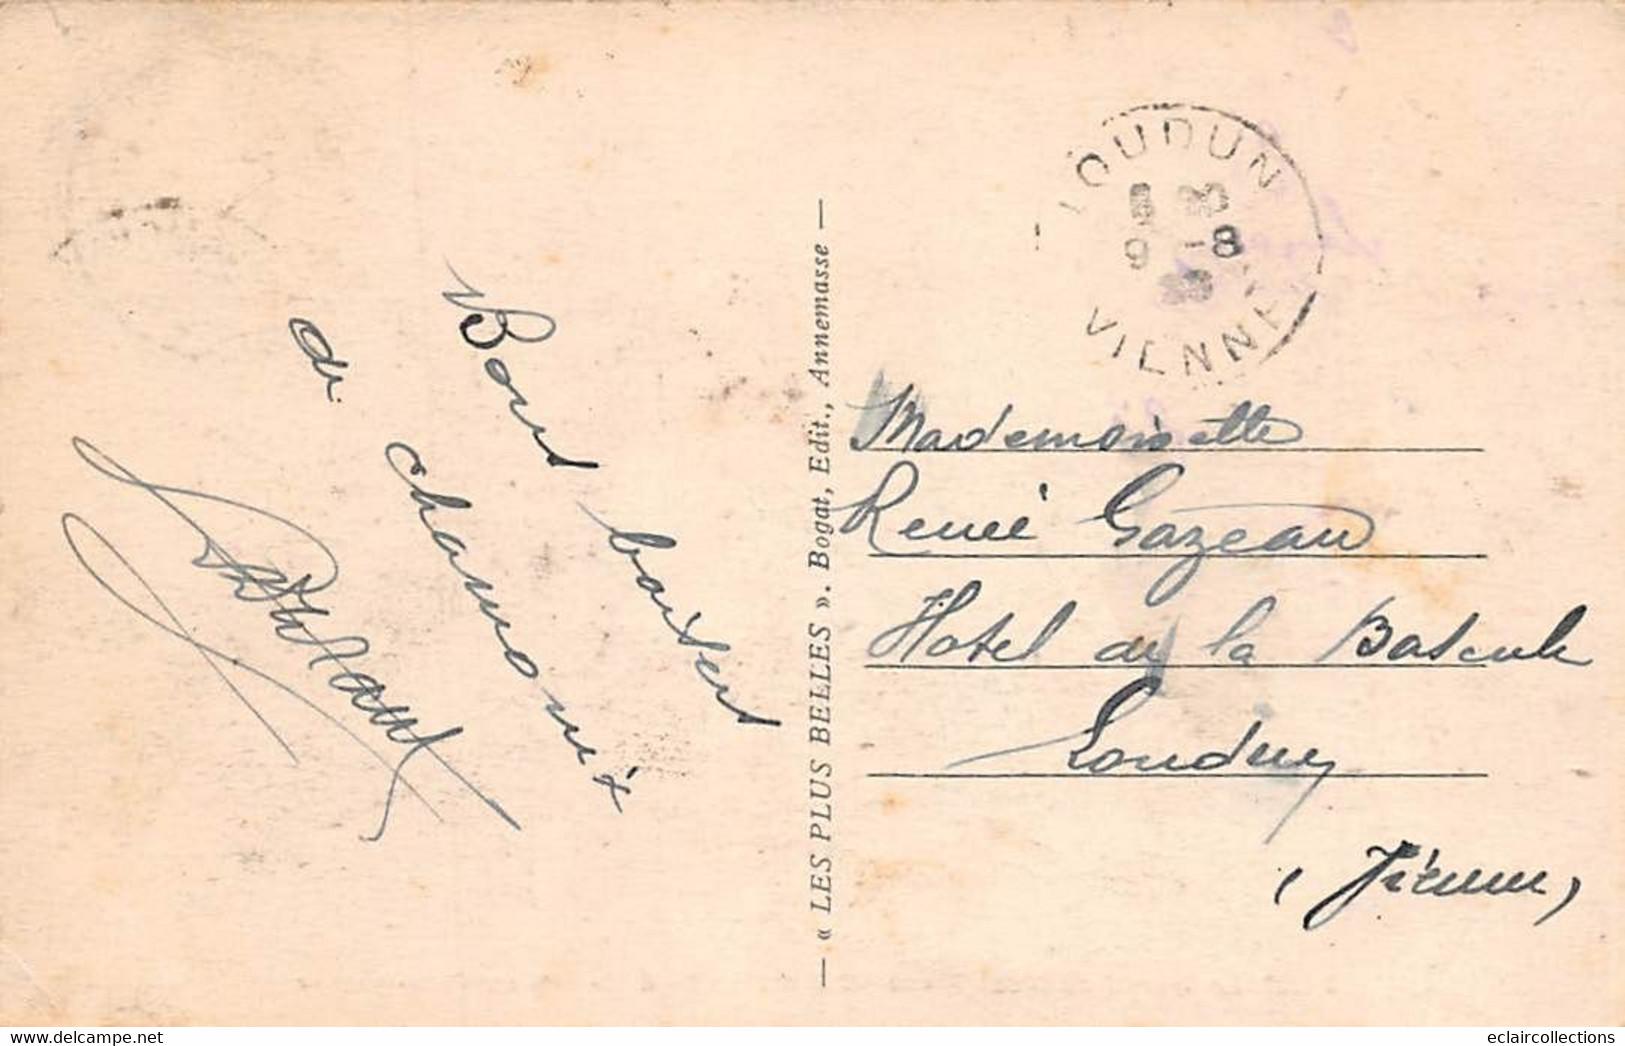 Bons baisers
de chamonix
« LES PLUS BELLES ». Bogat, Edit., Annemasse
LOUDUN
9 -8
VIENNE
Mademoiselle
Renée Gazeau
Hotel de la Bascule
Loudun
(Vienne)
www.delcampe.net
eclaircollections